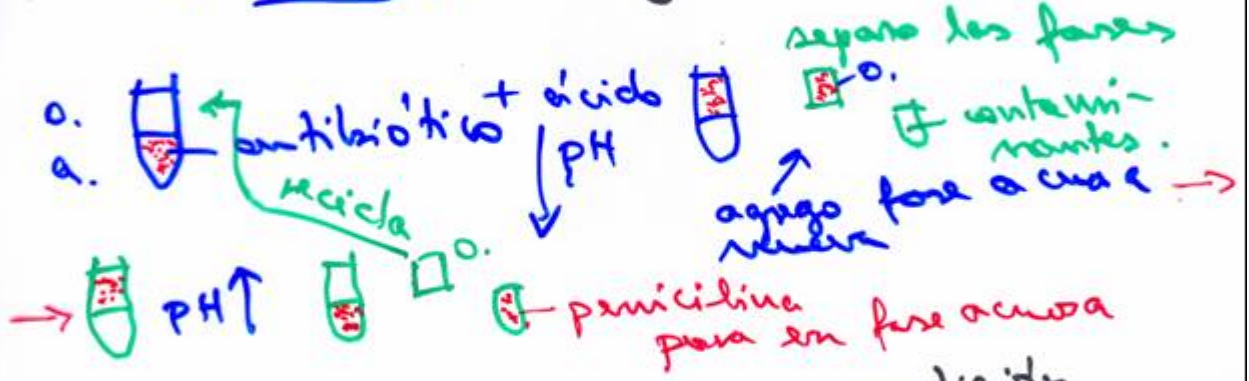 separo las fases
o.
a.
antibiótico + ácido
pH
o.
contami-
nantes.
recicla
agrego fase acuosa
nueva
o.
pH ↑
penicilina
pura en fase acuosa